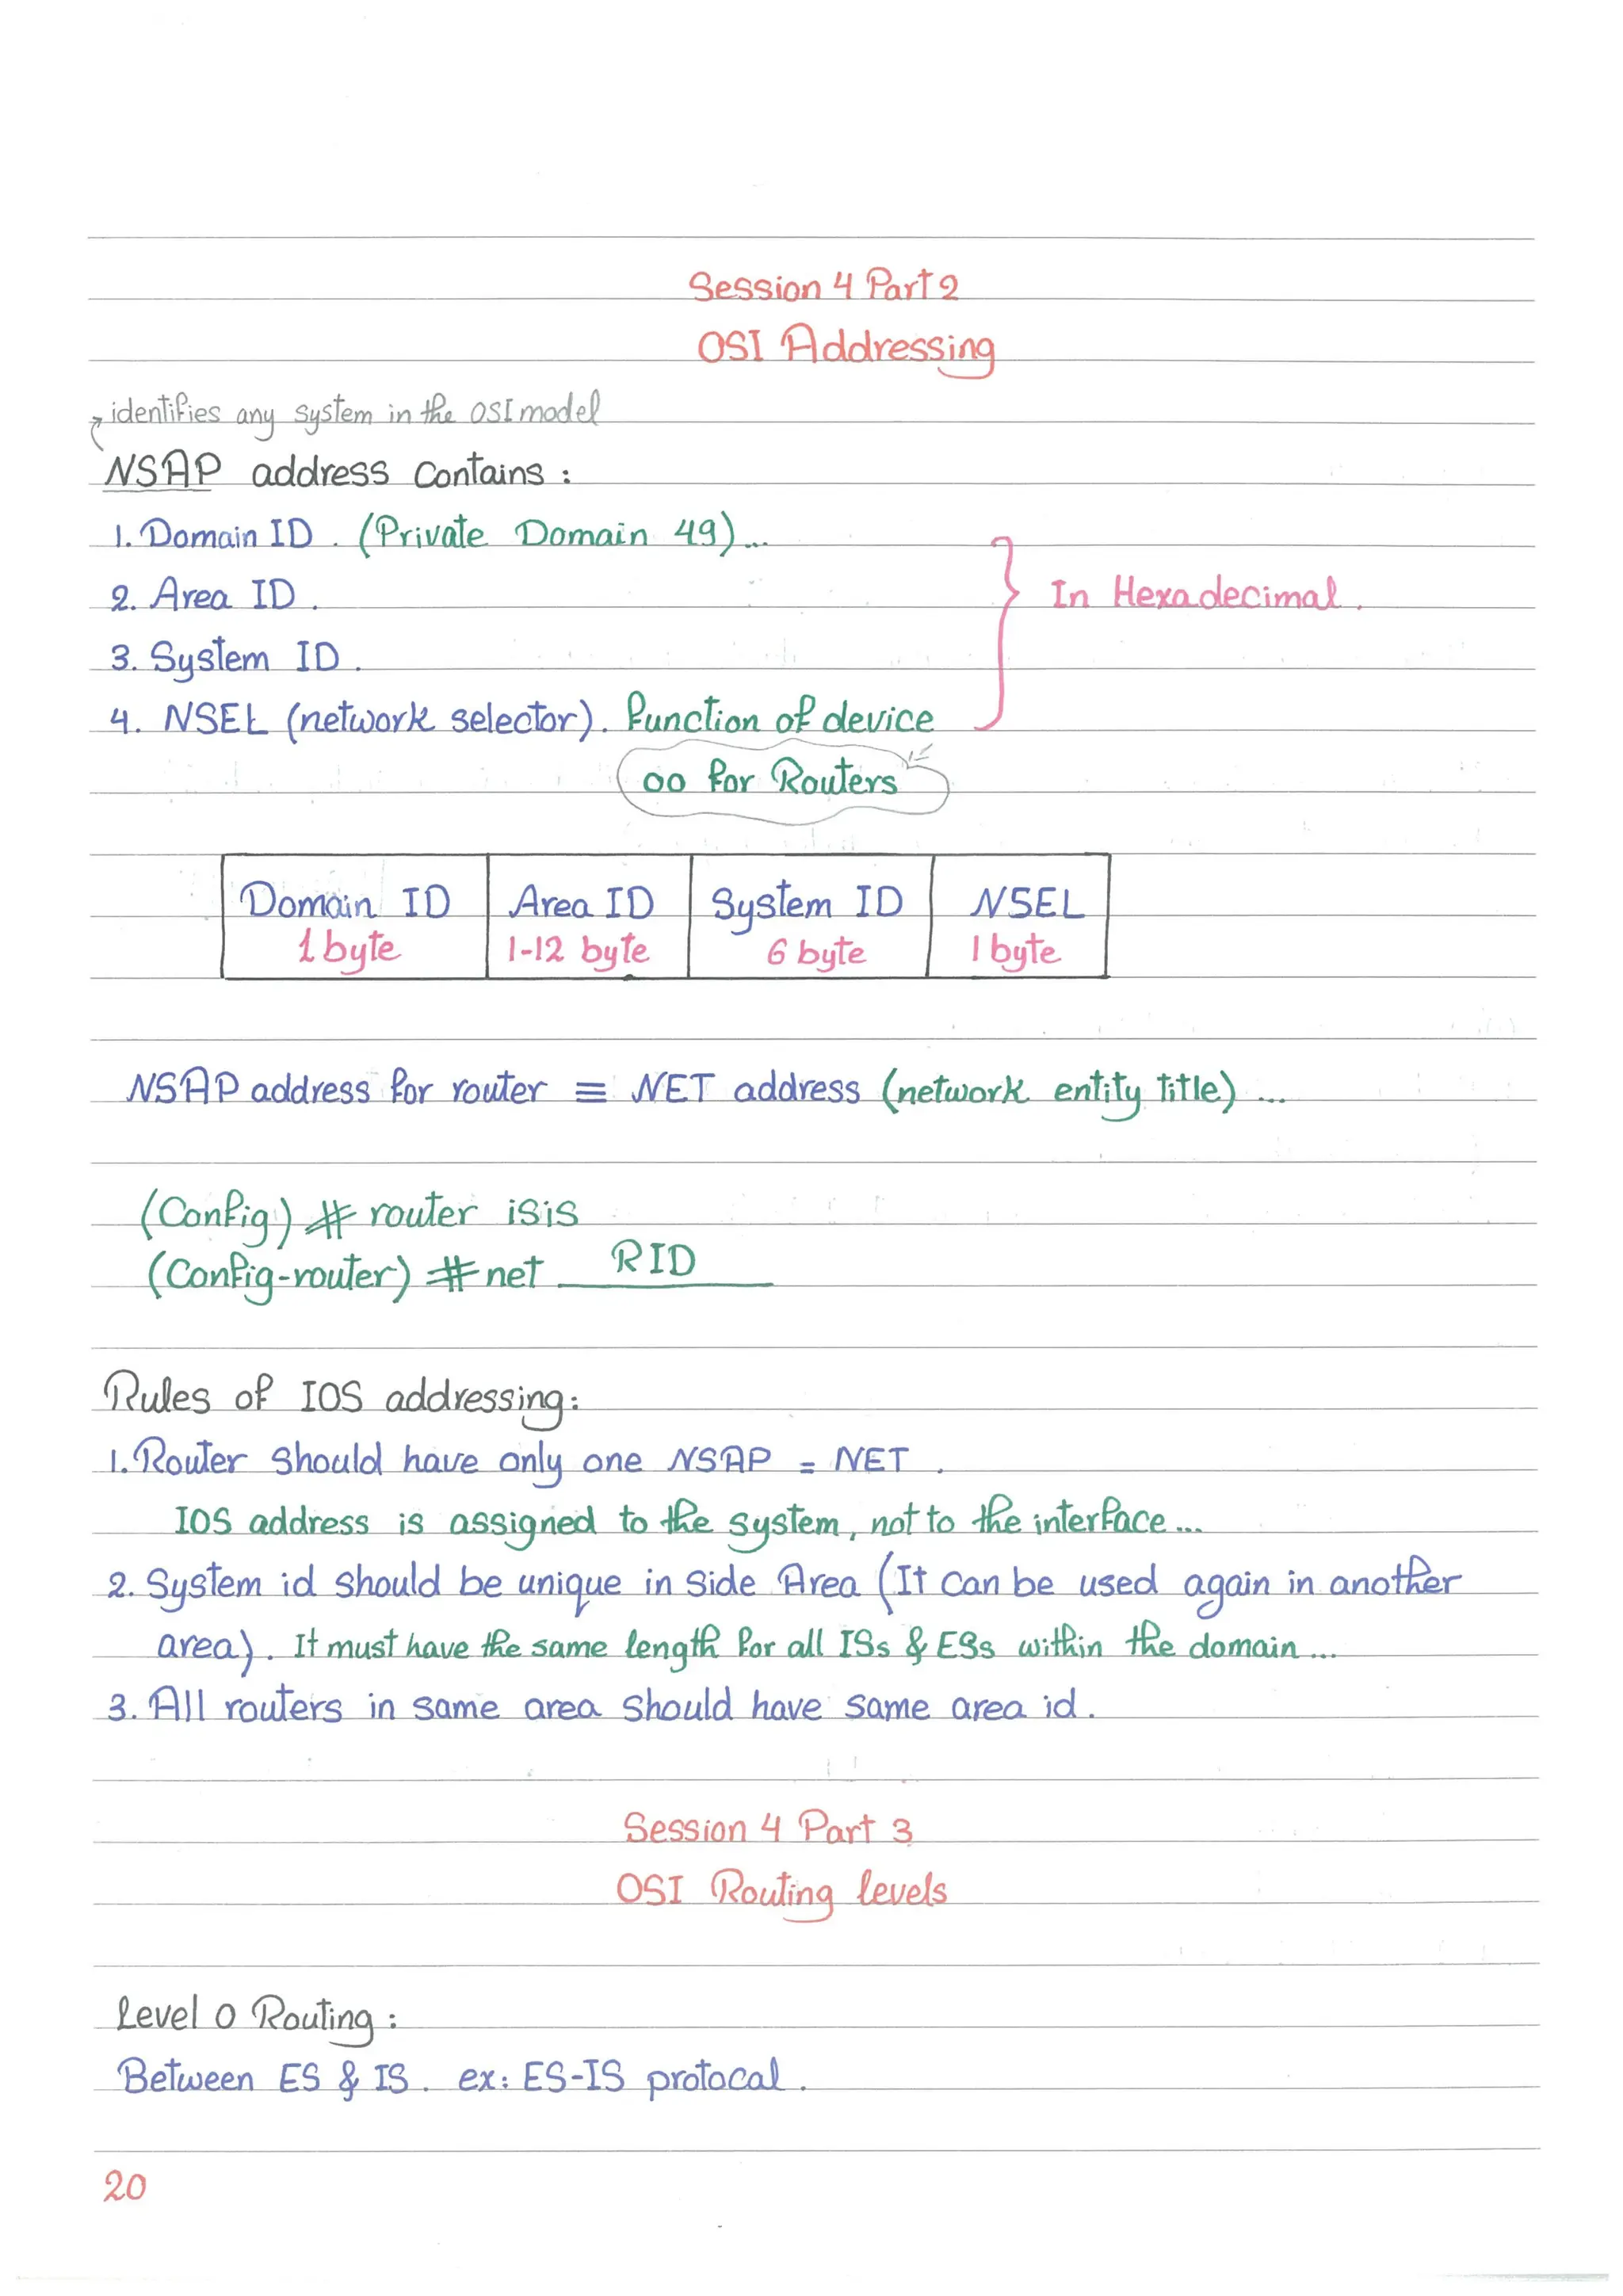 Session 4 Part 2
OSI Addressing
identifies any system in the OSI model
NSAP address Contains :
1. Domain ID . (Private Domain 49)...
2. Area ID .
In Hexadecimal .
3. System ID .
4. NSEL (network selector). function of device
00 for Routers
Domain ID Area ID System ID NSEL
1 byte 1-12 byte 6 byte 1 byte
NSAP address for router ≡ NET address (network entity title) ...
(Config) # router isis
(Config-router) # net RID
Rules of IOS addressing:
1. Router should have only one NSAP = NET .
IOS address is assigned to the system, not to the interface ...
2. System id should be unique in side Area (It can be used again in another
area). It must have the same length for all ISs & ESs within the domain ...
3. All routers in same area should have same area id .
Session 4 Part 3
OSI Routing levels
Level 0 Routing :
Between ES & IS . ex: ES-IS protocal .
20